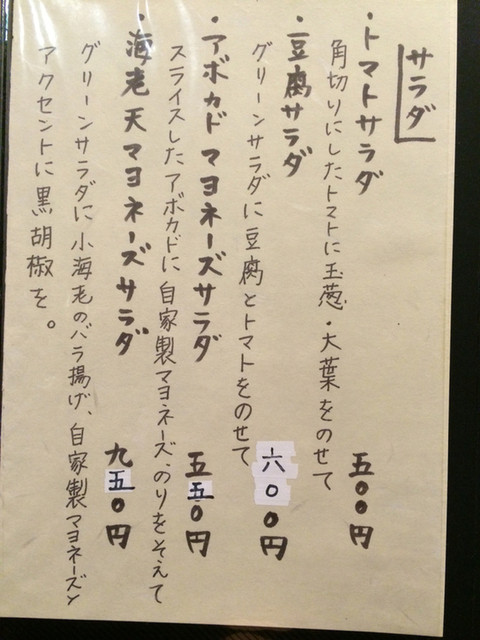 サラダ
・トマトサラダ 五〇〇円
角切りにしたトマトに玉葱・大葉をのせて
・豆腐サラダ 六〇〇円
グリーンサラダに豆腐とトマトをのせて
・アボカドマヨネーズサラダ 五五〇円
スライスしたアボカドに自家製マヨネーズ、のりをそえて
・海老天マヨネーズサラダ 九五〇円
グリーンサラダに小海老のバラ揚げ、自家製マヨネーズと
アクセントに黒胡椒を。